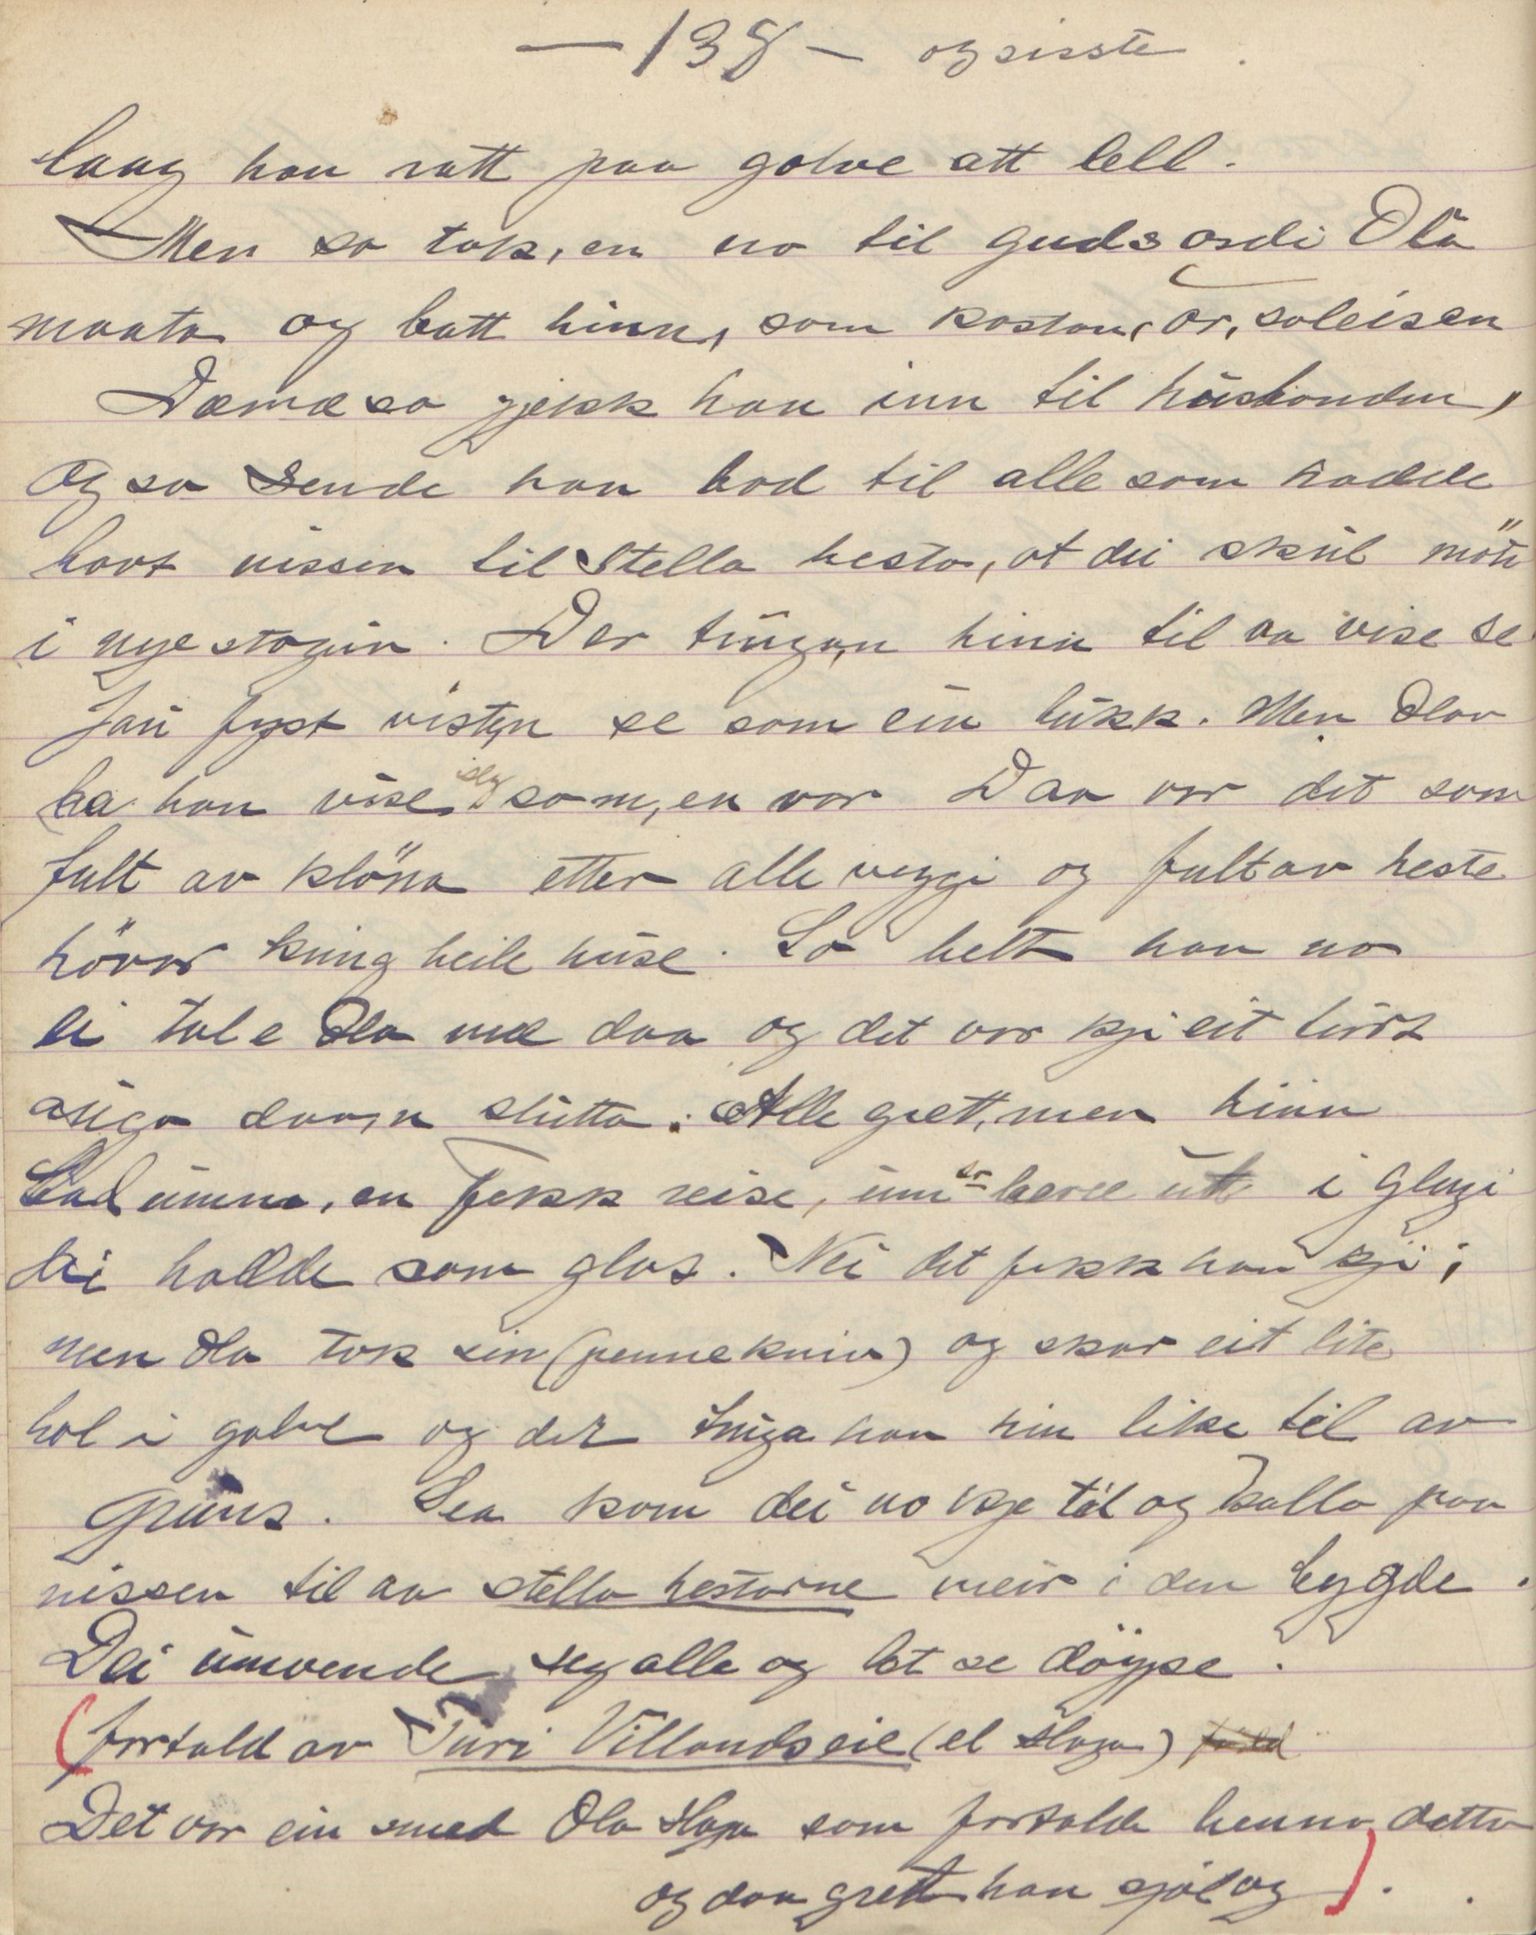 — 138 — og sisste.
laag han ratt paa golve att lell.
Men so tok, en no til guds ordi Ola
maata og batt hinn, som kaston, or, soleisen
Dæmæ so gjekk han inn til husbonden,
og so sende han bod til alle som hadde
havt nissen til stella hesta, at dei skul möte
i nyestogun. Der túngan hinn til aa vise se
Jau fyst vistyn se som ein búkk. Men Olav
ba han vise seg som, en var Daa var det som
fult av klöna etter alle veggi og fult av heste
hövar kring heile húse. So helt han no
ei tale Ola mæ daa og det var kji eit túrt
auga daa, n slutta. Alle gret, men hinn
bad umm, en fekk reise, um en berre út i glugi
dei hadde som glas. Nei det fekk han kji;
men Ola tok sin (pennekniv) og skar eit lite
hol i golve og der tvúga han hin like til av
grúns. Sea kom dei no kje til og kalla paa
nissen til aa stella hestarne meir i den bygde.
Dei úmvende seg alle og let se döype.
(fortald av Turi Villandseie (el Haga)
Det var ein smed Ola Haga som fortalde henna detta
og daa grett han sjöl og).